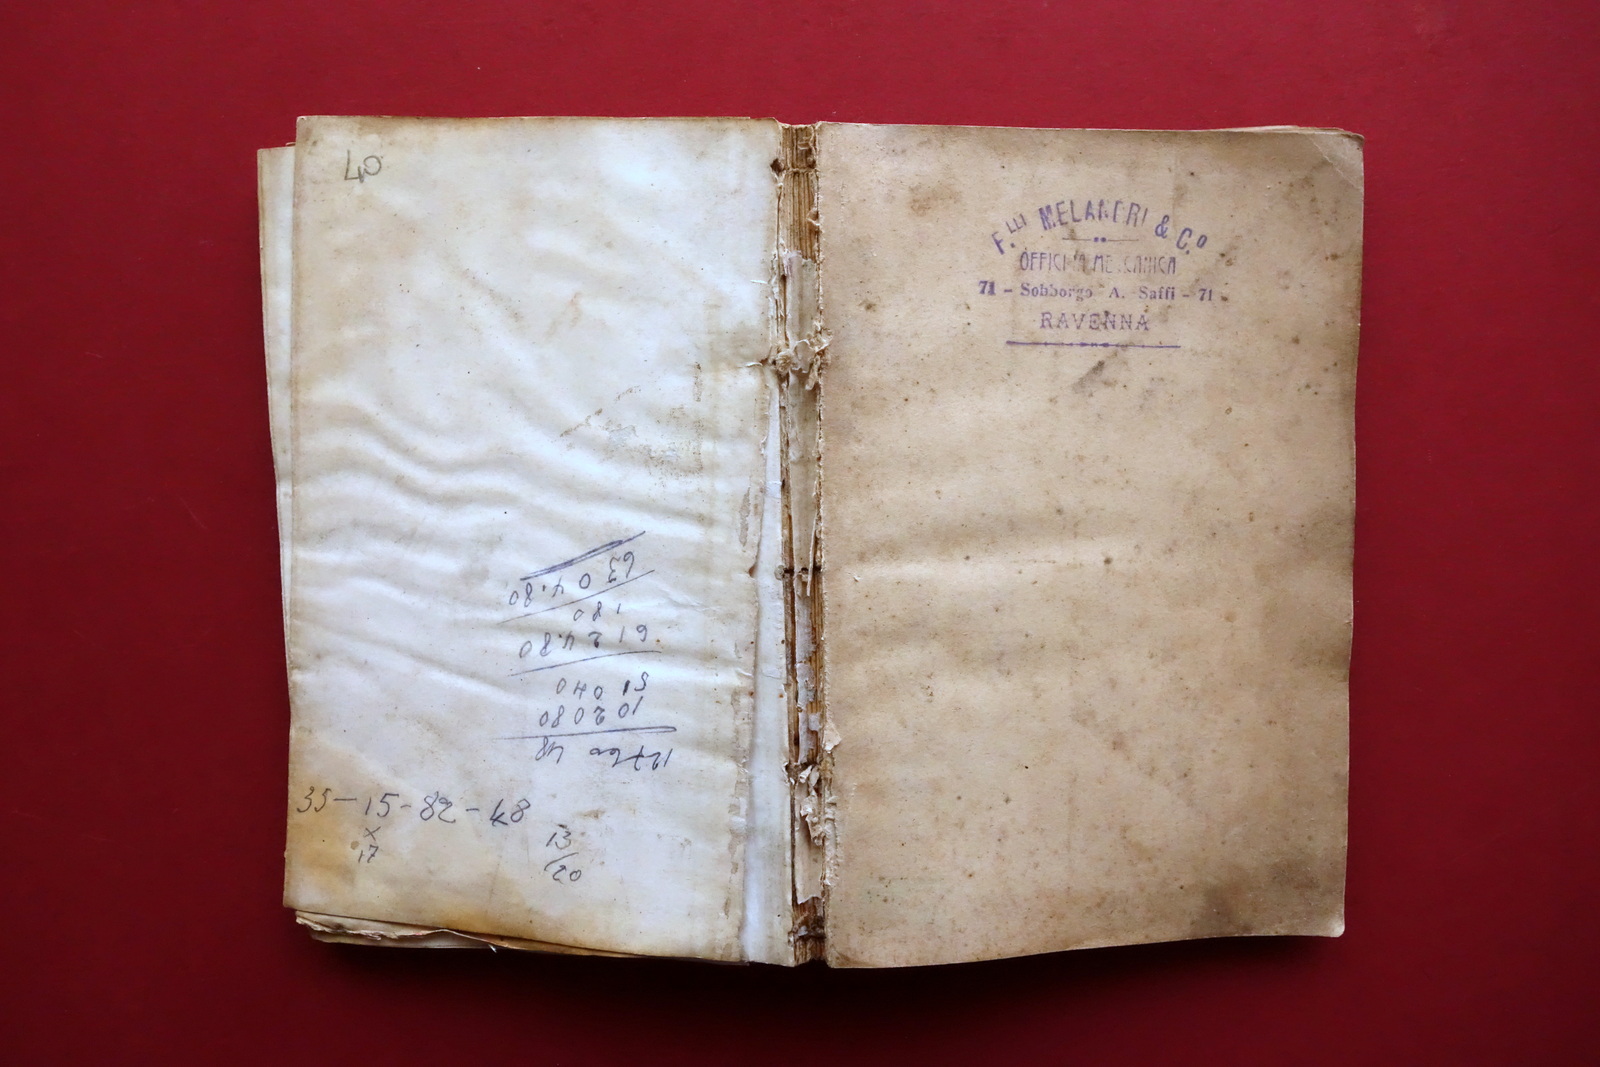 40
12760 48
10 2080
51 040
61 24.80
1 80
63 04.80
35-15-82-48
×
17
13
20
F.LLI MELANDRI & C.o
OFFICINA MECCANICA
71 - Sobborgo A. Saffi - 71
RAVENNA